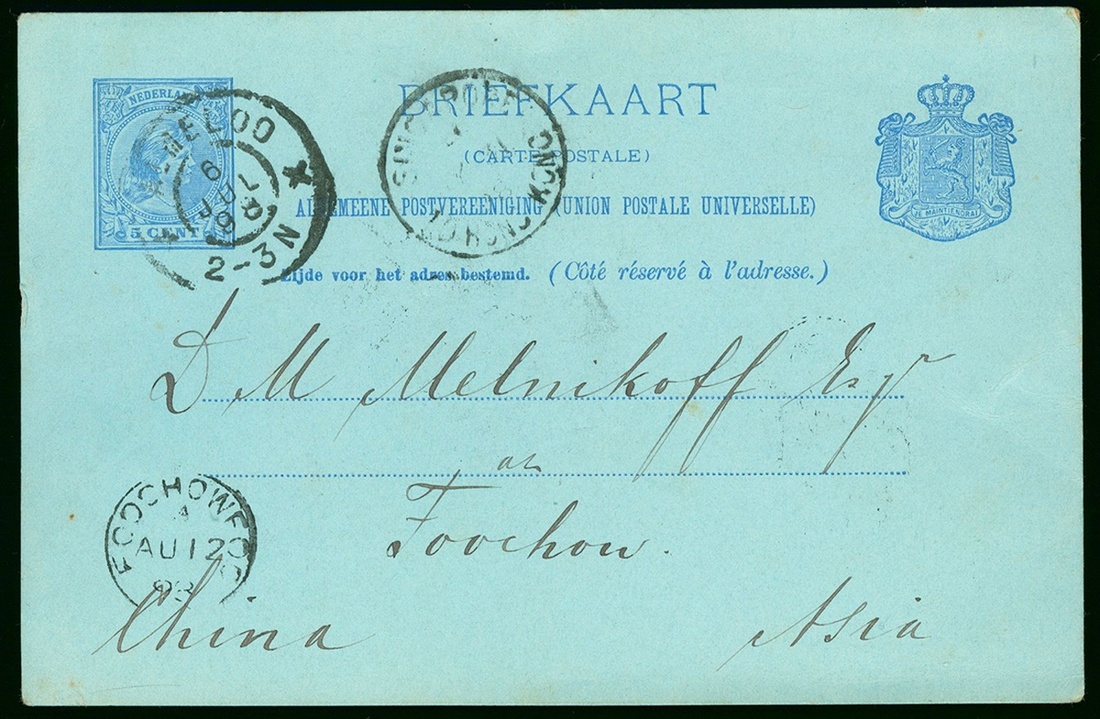 NEDERLAND
5 CENT
ALMELOO
6 JUL
93
2-3N
BRIEFKAART
(CARTE POSTALE)
ALGEMEENE POSTVEREENIGING (UNION POSTALE UNIVERSELLE)
Zijde voor het adres bestemd. (Côté réservé à l'adresse.)
JE MAINTIENDRAI
D M Melnikoff Esqr
Foochow.
FOOCHOWFOO
A
AU 12
93
China Asia